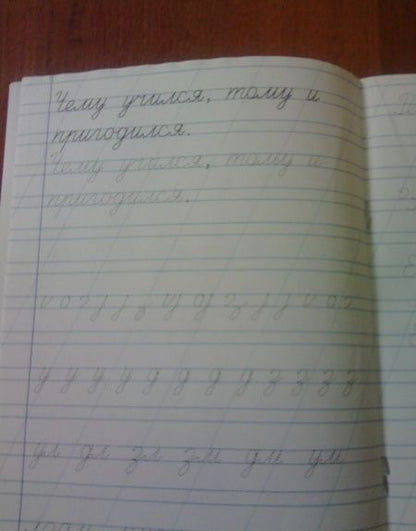 Чему учился, тому и
пригодился.
Чему учился, тому и
пригодился.
у у у у д д д д з з з з
ул дл зл зм дм ум